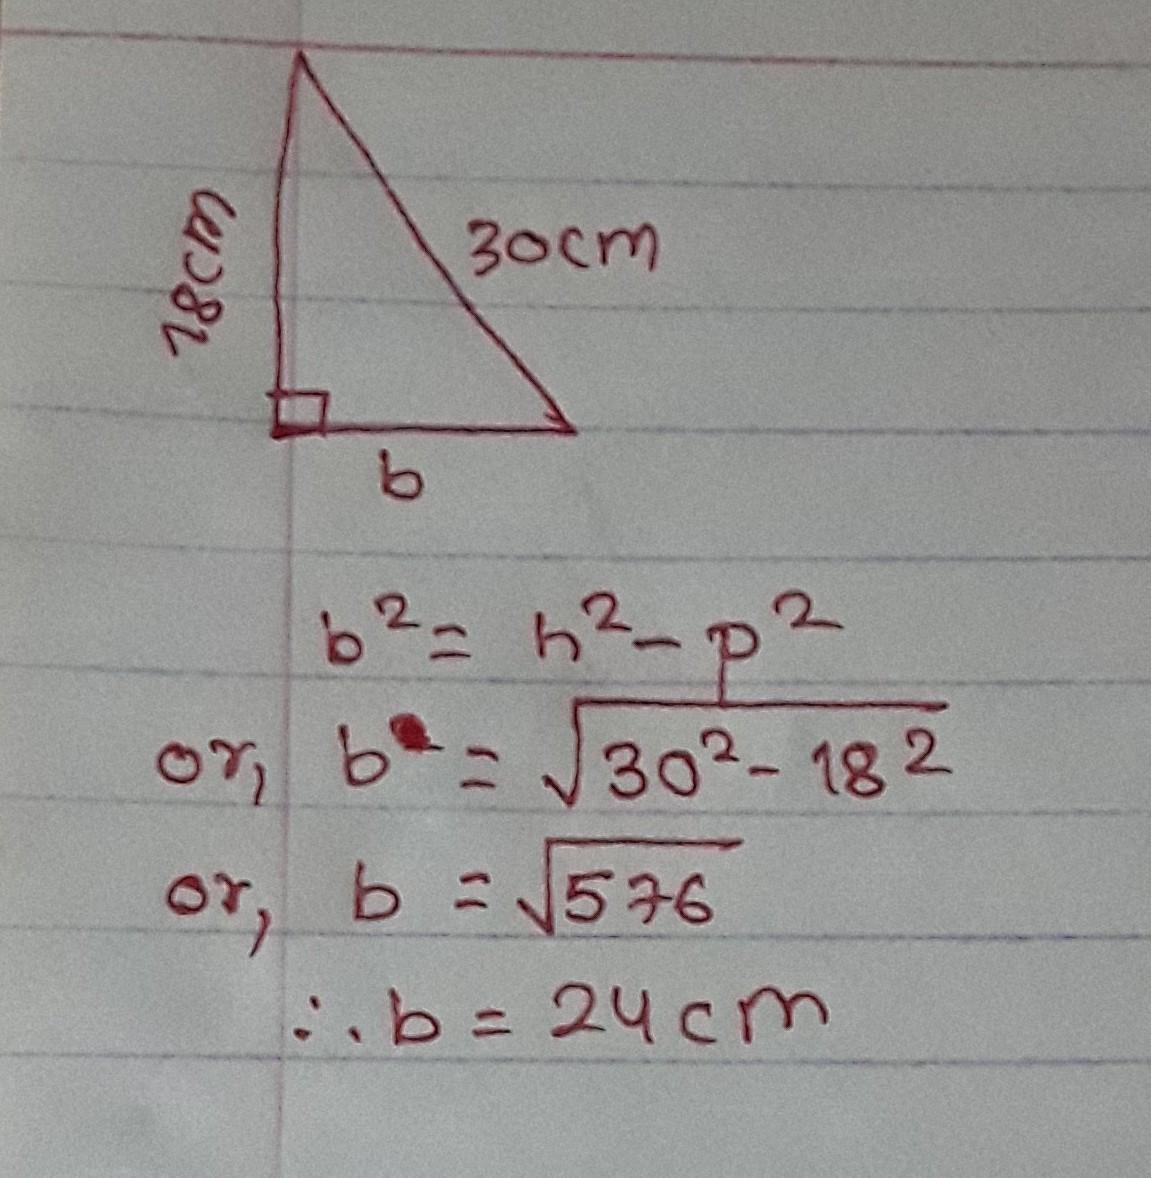 18cm
30cm
b
b² = h² - p²
or, b = √30² - 18²
or, b = √576
∴ b = 24cm